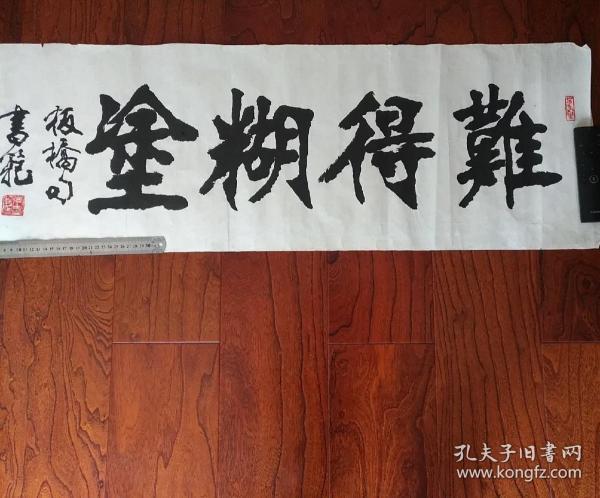 難得糊塗
板橋句
書範
孔夫子旧书网
www.kongfz.com